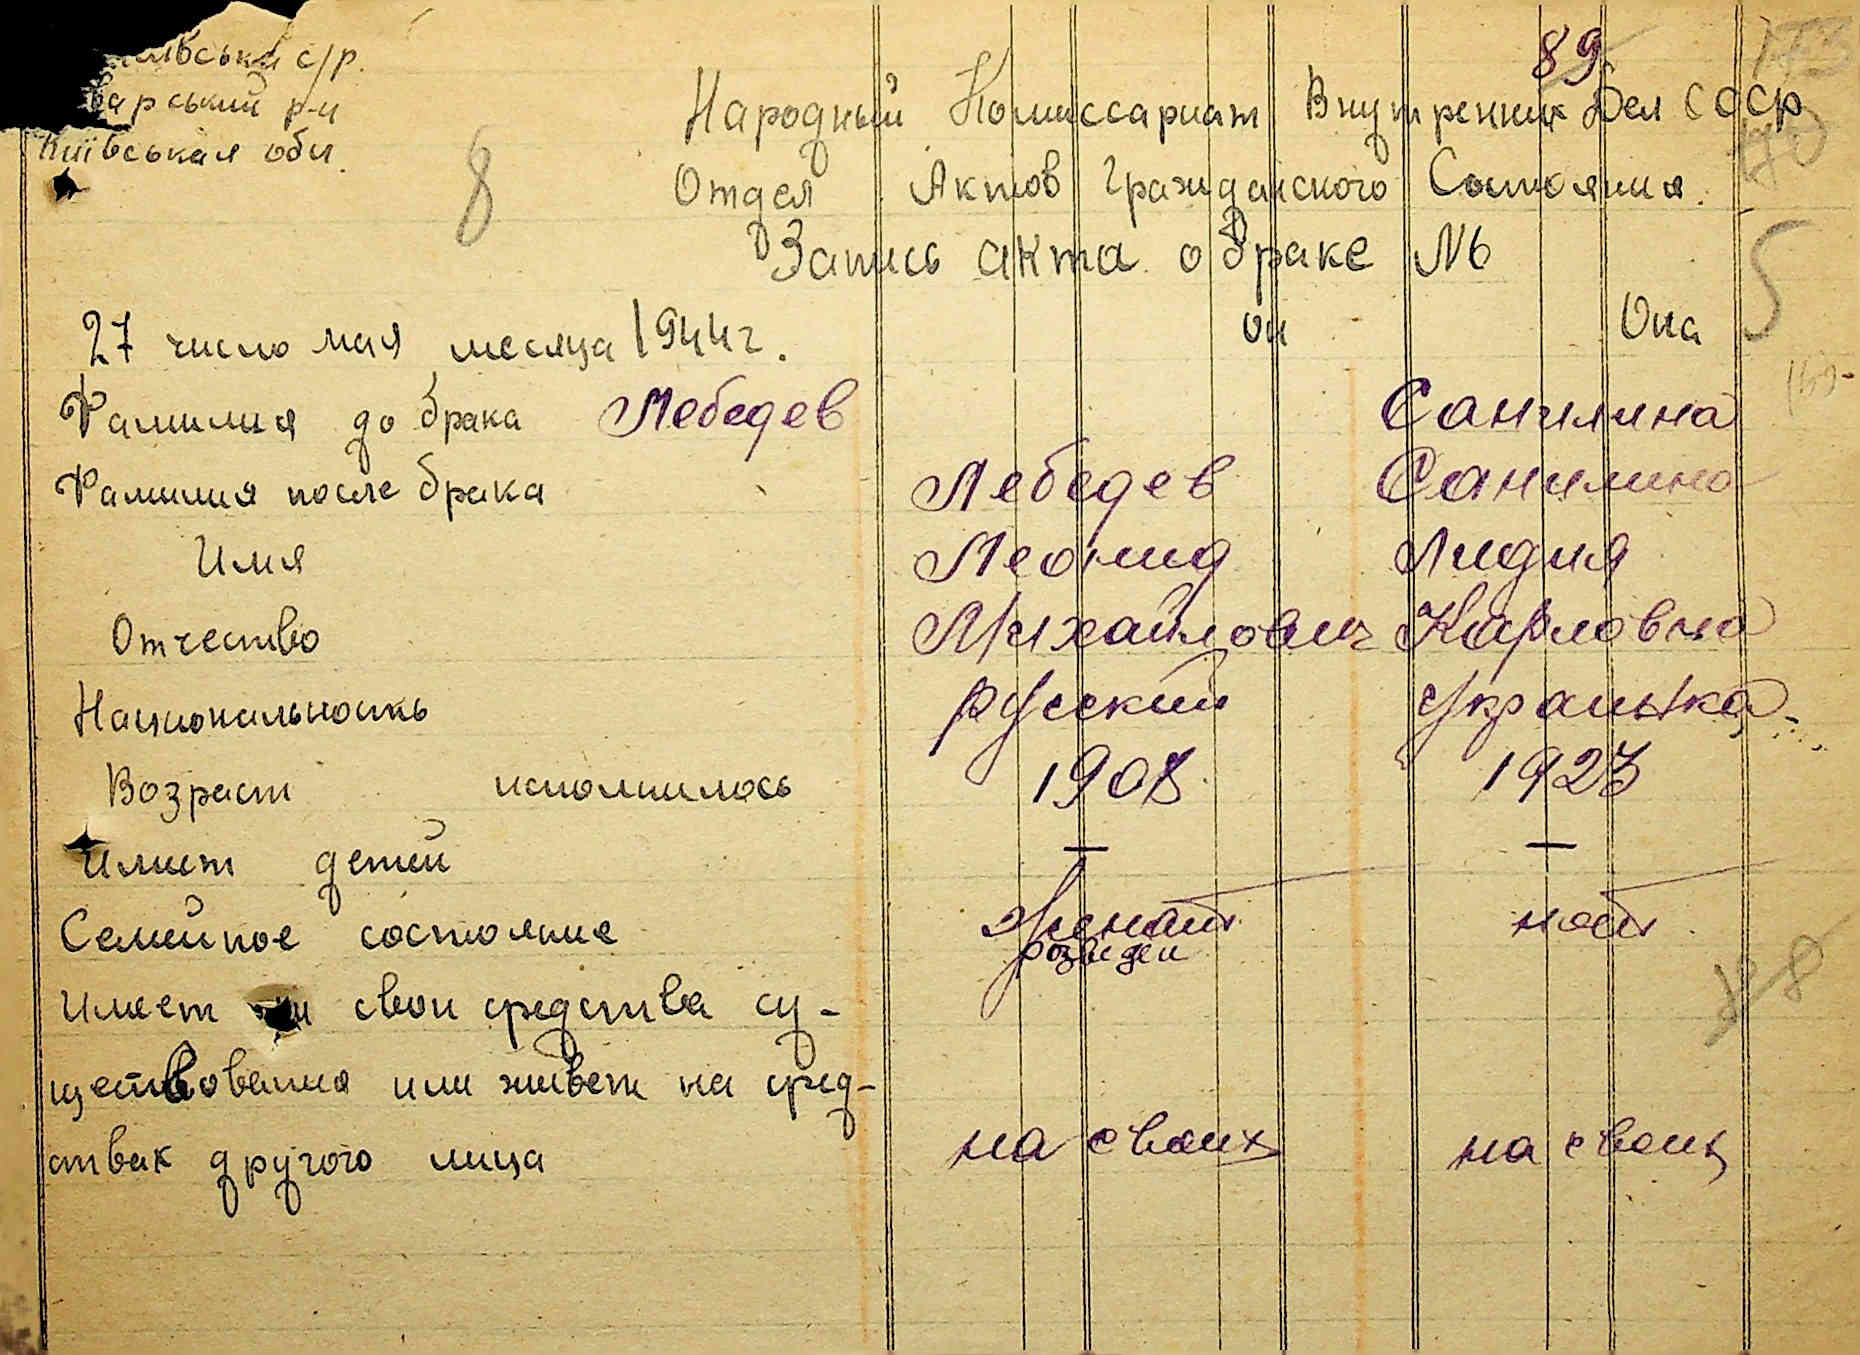 с/р.
р-н
Київськая обл.
89
8
Народный Комиссариат Внутренних Дел СССР
Отдел Актов Гражданского Состояния.
Запись акта о браке №
27 число мая месяца 1944 г.
Он Она
5
Фамилия до брака Лебедев Санилина
Фамилия после брака Лебедев Санилина
Имя Леонид Лидия
Отчество Михайлович Карловна
Национальность русский украинка
Возраст исполнилось 1908 1923
Имеет детей — —
Семейное состояние женат
розведен
Имеет ли свои средства су-
ществования или живет на сред-
ствах другого лица на своих на своих